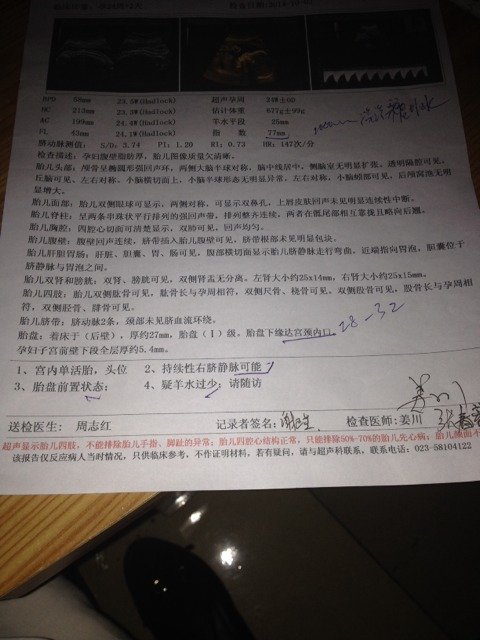 临床诊断: 孕24周+2天 检查日期:2014-10-02
BPD 58mm 23.5W(Hadlock) 超声孕周 24W±0D
HC 213mm 23.3W(Hadlock) 估计体重 677g±99g
AC 199mm 24.4W(Hadlock) 羊水平段 25mm
FL 43mm 24.1W(Hadlock) 指 数 77mm
脐动脉测值: S/D: 3.74 PI: 1.20 RI: 0.73 HR: 147次/分
检查描述: 孕妇腹壁脂肪厚, 胎儿图像质量欠清晰。
胎儿头部: 颅骨呈椭圆形强回声环, 两侧大脑半球对称, 脑中线居中, 侧脑室无明显扩张。透明隔腔可见,
丘脑可见, 左右对称。小脑横切面上, 小脑半球形态无明显异常, 左右对称, 小脑蚓部可见, 后颅窝池无明
显增大。
胎儿面部: 胎儿双侧眼球可显示, 两侧对称, 可显示双鼻孔, 上唇皮肤回声未见明显连续性中断。
胎儿脊柱: 呈两条串珠状平行排列的强回声带, 排列整齐连续, 两者在骶尾部相互靠拢且略向后翘。
胎儿胸腔: 四腔心切面可清楚显示, 双肺可见, 回声均匀。
胎儿腹壁: 腹壁回声连续, 脐带插入胎儿腹壁可见, 脐带根部未见明显包块。
胎儿肝胆胃肠: 肝脏、胆囊、胃、肠可见, 腹部横切面显示胎儿脐静脉走行弯曲, 近端指向胃泡, 胆囊位于
脐静脉与胃泡之间。
胎儿双肾和膀胱: 双肾、膀胱可见, 双侧肾盂无分离。左肾大小约25x14mm, 右肾大小约25x15mm。
胎儿四肢: 胎儿双侧肱骨可见, 肱骨长与孕周相符, 双侧尺骨、桡骨可见。双侧股骨可见, 股骨长与孕周相
符, 双侧胫骨、腓骨可见。
胎儿脐带: 脐动脉2条, 颈部未见脐血流环绕。
胎盘: 着床于(后壁), 厚约27mm, 胎盘(Ⅰ)级。胎盘下缘达宫颈内口。 28-32
孕妇子宫前壁下段全层厚约5.4mm。
1、宫内单活胎, 头位 2、持续性右脐静脉可能
3、胎盘前置状态; 4、疑羊水过少; 请随访
送检医生: 周志红 记录者签名: 检查医师: 姜川
超声显示胎儿四肢, 不能排除胎儿手指、脚趾的异常; 胎儿四腔心结构正常, 只能排除50%-70%的胎儿先心病; 胎儿颜面不
该报告仅反应病人当时情况, 只供临床参考, 不作证明材料, 若有疑问, 请与超声科联系。联系电话: 023-58104122